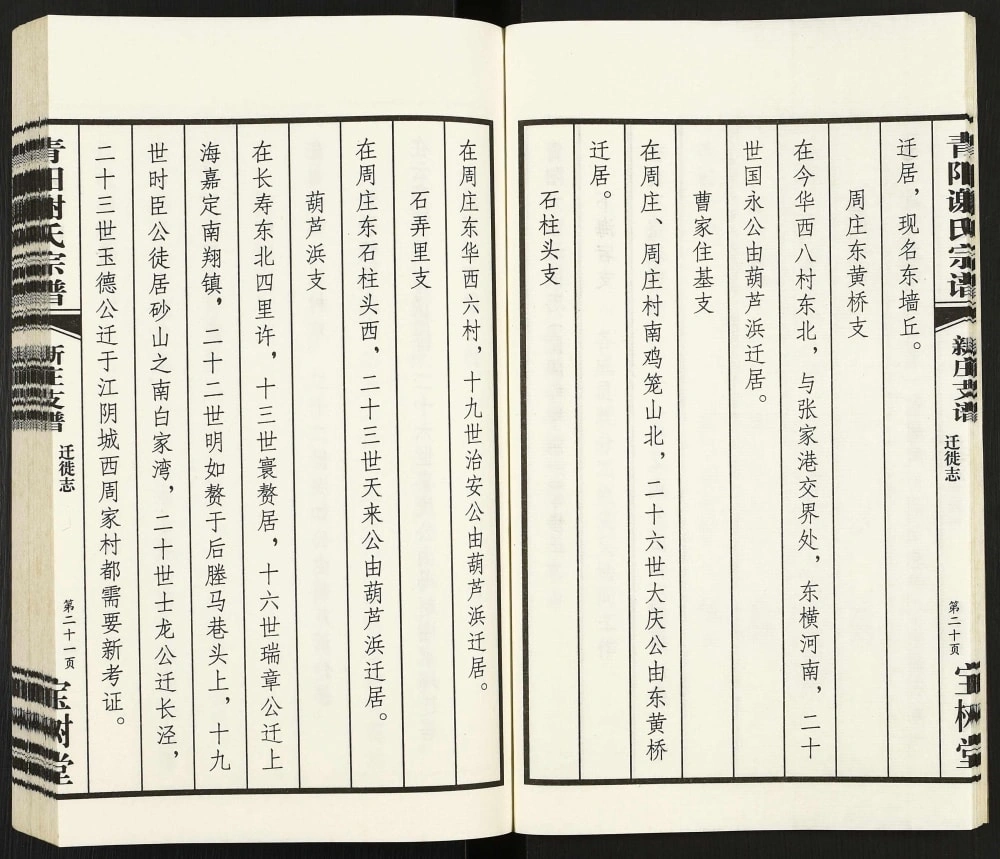 青阳谢氏宗谱
新庄支谱
迁徙志
第二十页
宝树堂
迁居，现名东墙丘。
周庄东黄桥支
在今华西八村东北，与张家港交界处，东横河南，二十
世国永公由葫芦浜迁居。
曹家住基支
在周庄、周庄村南鸡笼山北，二十六世大庆公由东黄桥
迁居。
石柱头支
在周庄东华西六村，十九世治安公由葫芦浜迁居。
石弄里支
在周庄东石柱头西，二十三世天来公由葫芦浜迁居。
葫芦浜支
在长寿东北四里许，十三世寰赘居，十六世瑞章公迁上
海嘉定南翔镇，二十二世明如赘于后塍马巷头上，十九
世时臣公徒居砂山之南白家湾，二十世士龙公迁长泾，
二十三世玉德公迁于江阴城西周家村都需要新考证。
青阳谢氏宗谱
新庄支谱
迁徙志
第二十一页
宝树堂